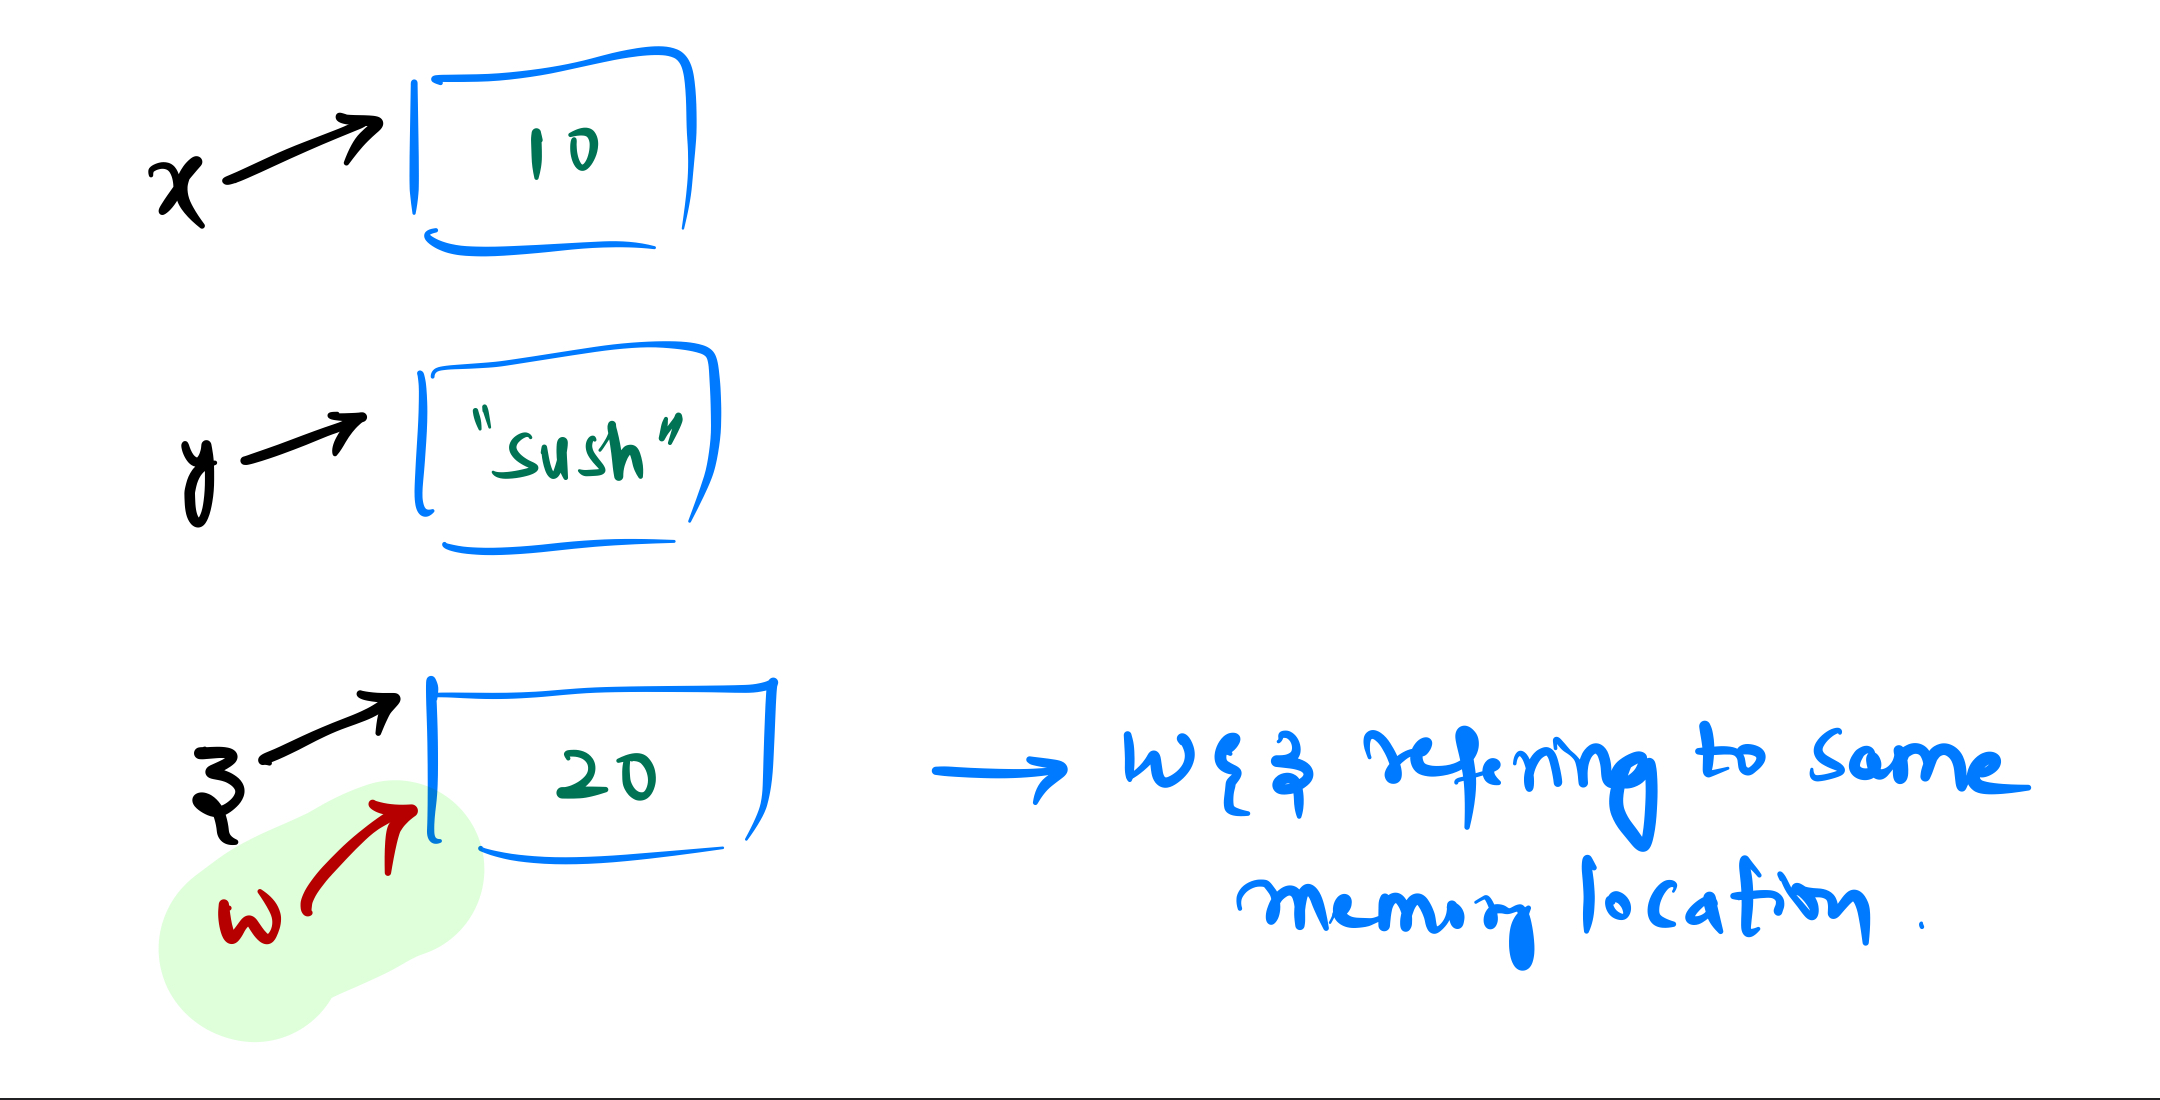 x → 10
y → "sush"
z → 20 → w & z refering to same
w memory location.